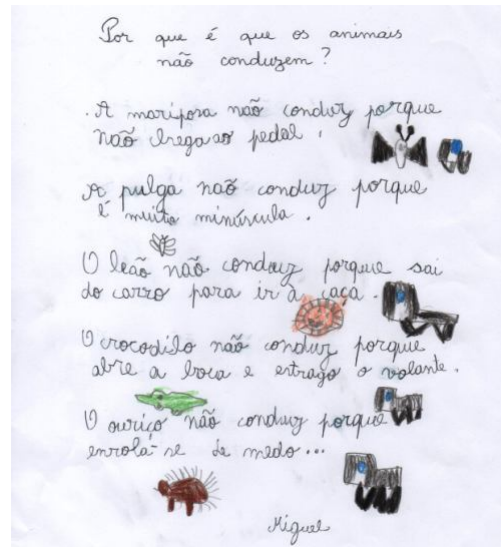 Por que é que os animais
não conduzem?
. A mariposa não conduz porque
não chega ao pedal.
A pulga não conduz porque
é muito minúscula.
O leão não conduz porque sai
do carro para ir à caça.
O crocodilo não conduz porque
abre a boca e estraga o volante.
O ouriço não conduz porque
enrola-se de medo...
Miguel